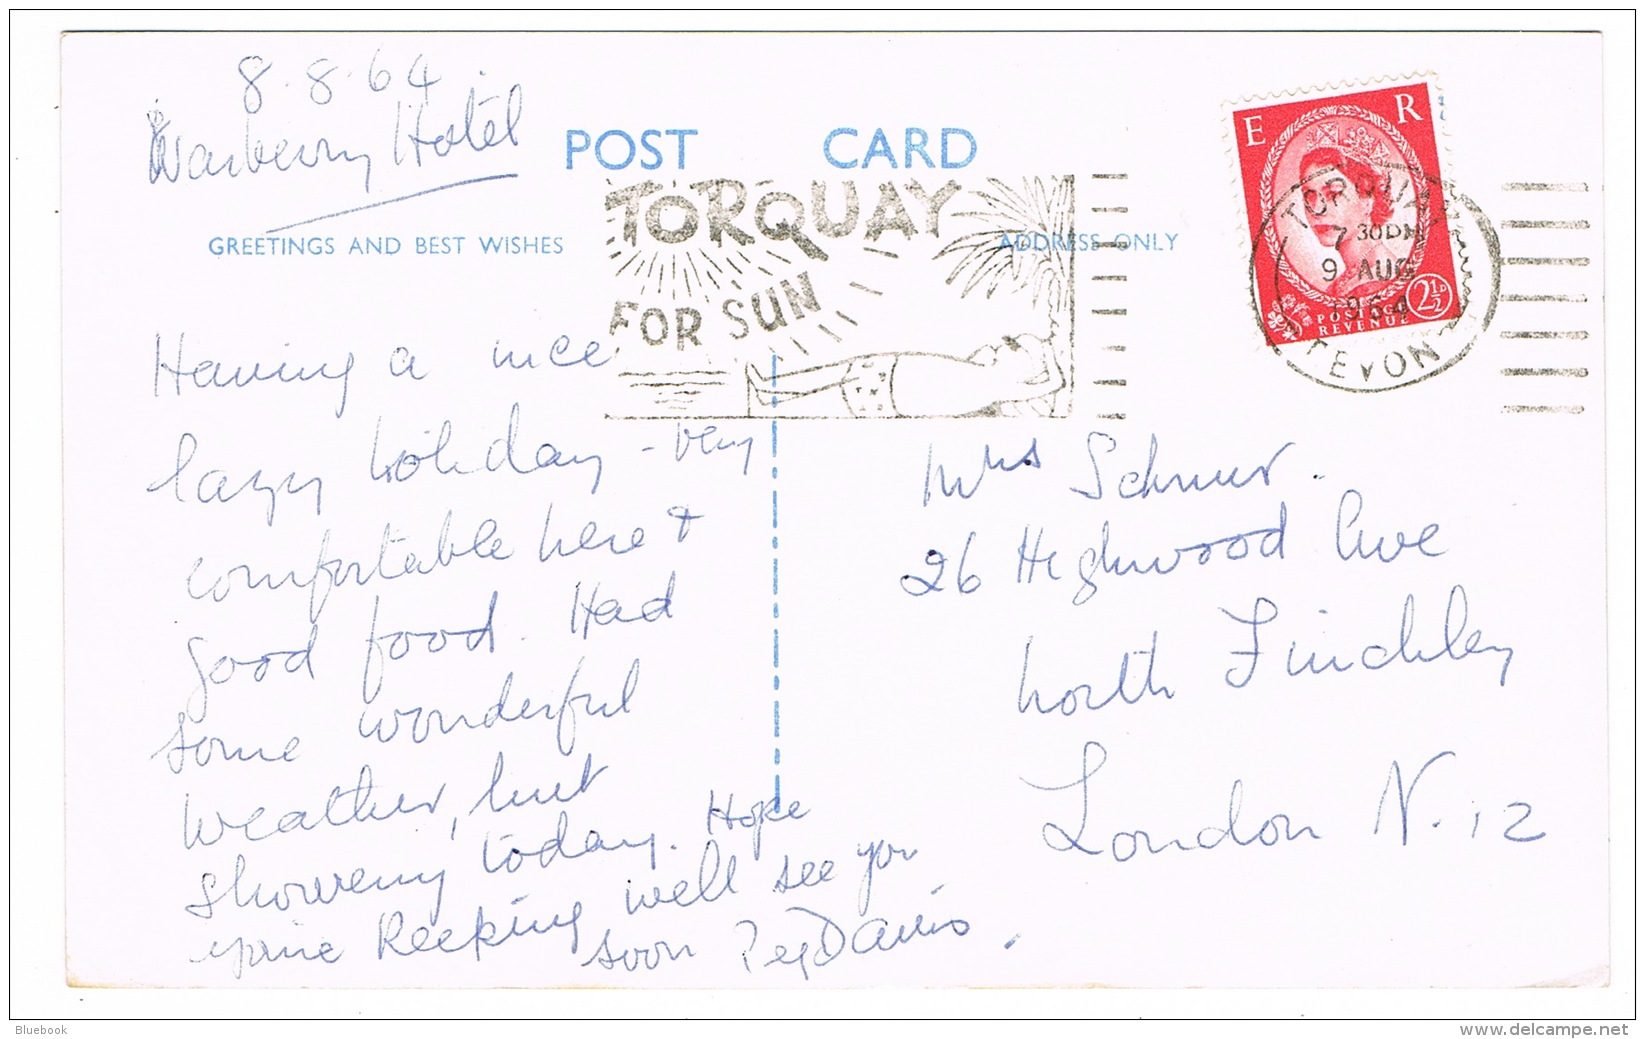 8.8.64
Warberry Hotel
POST CARD
GREETINGS AND BEST WISHES
ADDRESS ONLY
TORQUAY
FOR SUN
E R
POSTAGE
REVENUE
2½D
TORQUAY
7 30PM
9 AUG
1964
DEVON
Having a nice
lazy holiday - very
comfortable here &
good food. Had
some wonderful
weather, but
showery today. Hope
you're keeping well see you
soon Peg Davis.
Mrs Schnur.
26 Highwood Ave
North Finchley
London N.12
Bluebook
delcampe.net